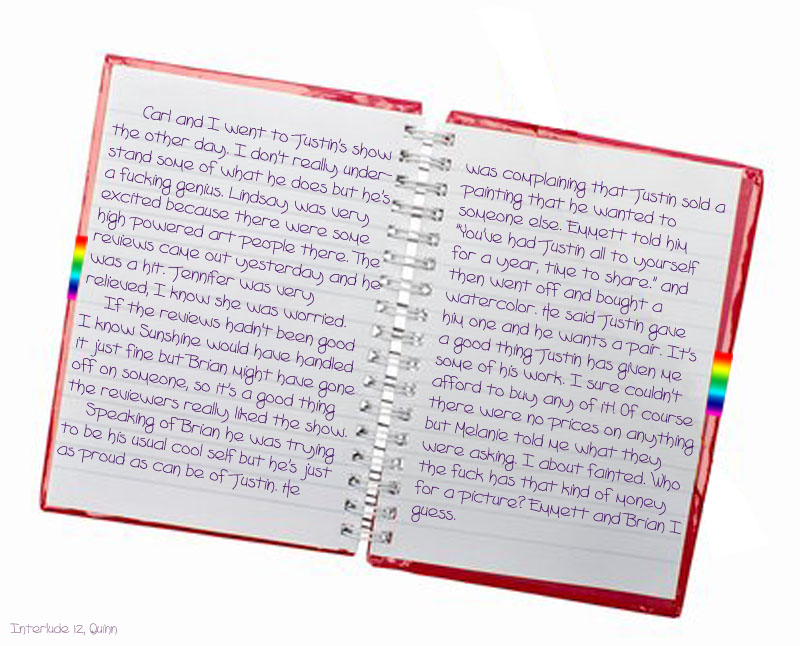 Carl and I went to Justin's show
the other day. I don't really under-
stand some of what he does but he's
a fucking genius. Lindsay was very
excited because there were some
high powered art people there. The
reviews came out yesterday and he
was a hit. Jennifer was very
relieved, I know she was worried.
If the reviews hadn't been good
I know Sunshine would have handled
it just fine but Brian might have gone
off on someone, so it's a good thing
the reviewers really liked the show.
Speaking of Brian he was trying
to be his usual cool self but he's just
as proud as can be of Justin. He
was complaining that Justin sold a
painting that he wanted to
someone else. Emmett told him
"You've had Justin all to yourself
for a year, time to share." and
then went off and bought a
watercolor. He said Justin gave
him one and he wants a pair. It's
a good thing Justin has given me
some of his work. I sure couldn't
afford to buy any of it! Of course
there were no prices on anything
but Melanie told me what they
were asking. I about fainted. Who
the fuck has that kind of money
for a picture? Emmett and Brian I
guess.
Interlude 12, Quinn